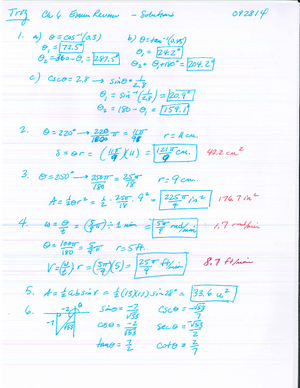 Trig Ch 6 Exam Review - Solutions 092814
1. a) θ = cos⁻¹(0.3) b) θ = tan⁻¹(0.45)
θ₁ = 72.5° θ₁ = 24.2°
θ₂ = 360 - θ₁ = 287.5° θ₂ = θ₁ + 180° = 204.2°
c) csc θ = 2.8 → sin θ = 1/2.8
θ₁ = sin⁻¹(1/2.8) = 20.9°
θ₂ = 180 - θ₁ = 159.1°
2. θ = 220° → 220/180 π = 11π/9 r = 11 cm.
s = θr = (11π/9)(11) = 121π/9 cm. 42.2 cm²
3. θ = 250° → 250π/180 = 25π/18 r = 9 cm.
A = ½θr² = ½ · 25π/18 · 9² = 225π/4 in² 176.7 in²
4. ω = θ/t = (5π/9) ÷ 1 min = 5π/9 rad/min 1.7 rad/min
θ = 100π/180 = 5π/9 r = 5 ft.
V = (θ/t) r = (5π/9)(5) = 25π/9 ft/min 8.7 ft/min
5. A = ½ab sin γ = ½(13)(11) sin 28° = 33.6 u²
6. -2 θ sin θ = -7/√53 csc θ = -√53/7
-7 √53 cos θ = -2/√53 sec θ = -√53/2
tan θ = 7/2 cot θ = 2/7